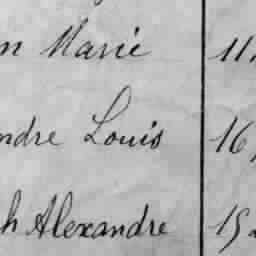 n Marie 11
ndre Louis 16
h Alexandre 15